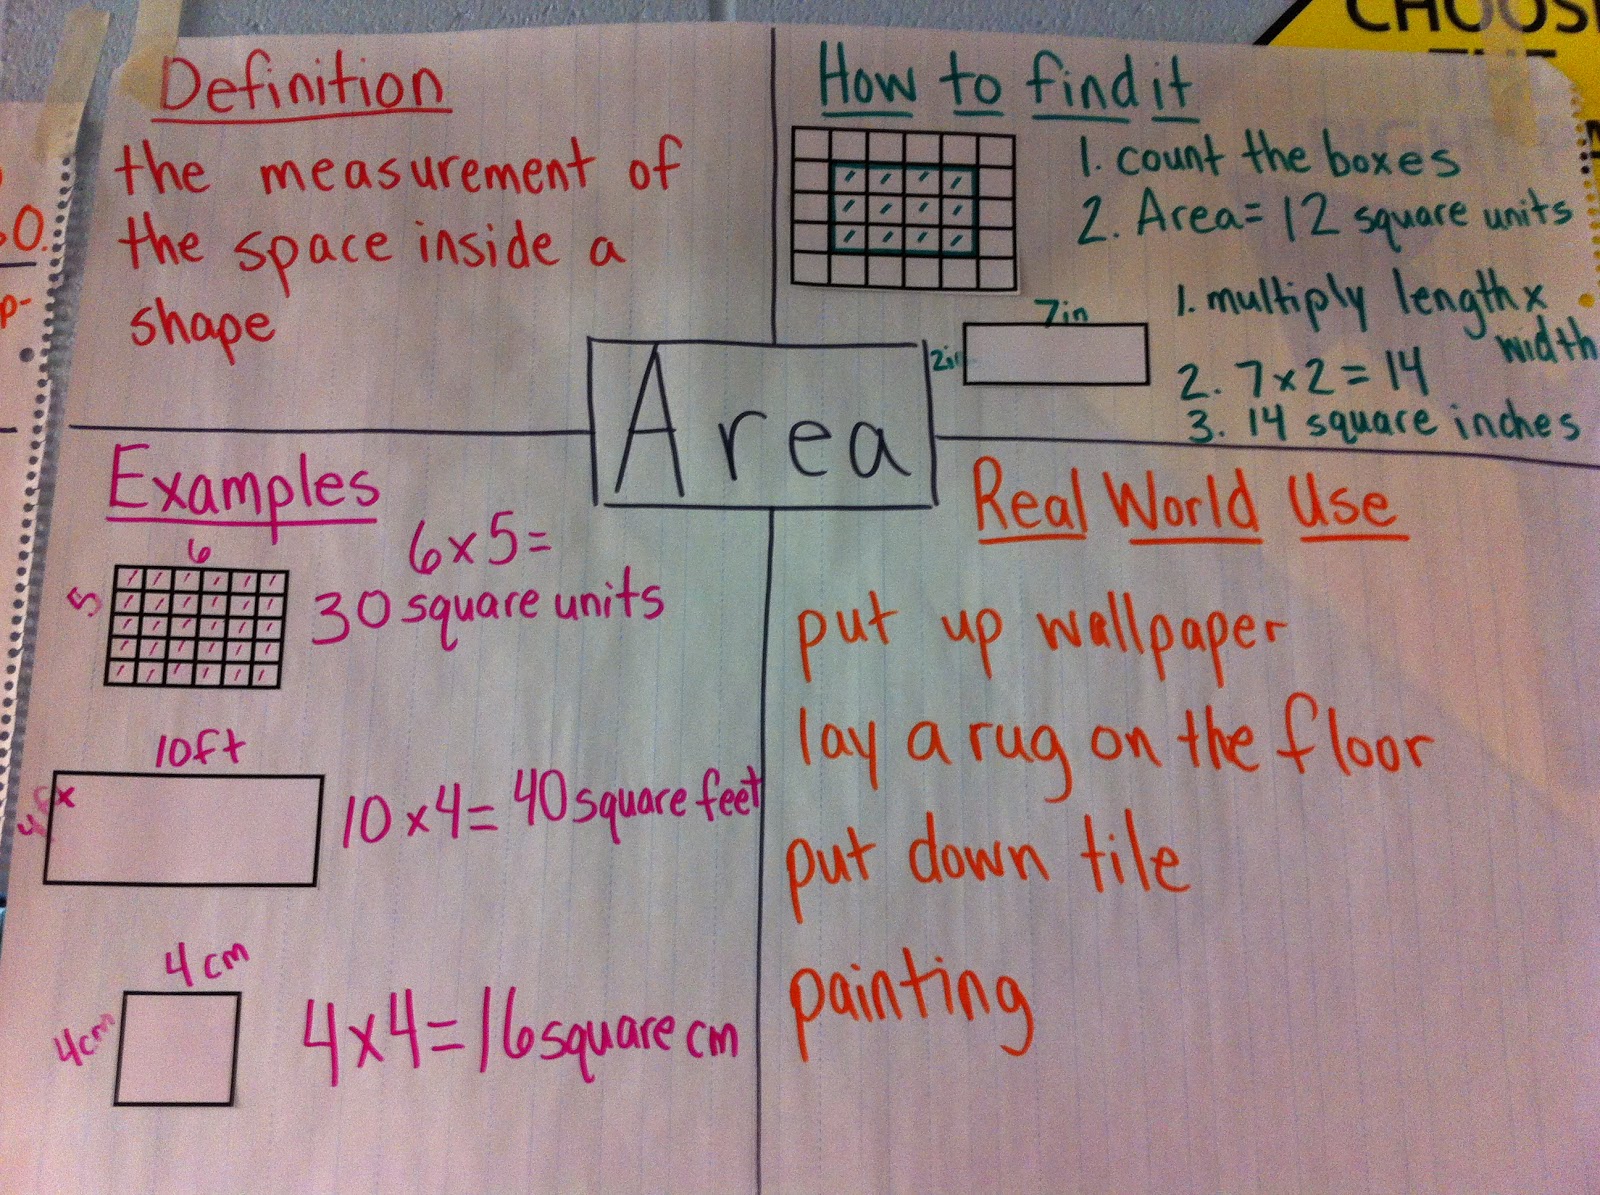 Definition
the measurement of
the space inside a
shape
How to find it
1. count the boxes
2. Area = 12 square units
7in
2in
1. multiply length x
width
2. 7 x 2 = 14
3. 14 square inches
Area
Examples
6
5
6 x 5 =
30 square units
10ft
x
10 x 4 = 40 square feet
4 cm
4cm
4 x 4 = 16 square cm
Real World Use
put up wallpaper
lay a rug on the floor
put down tile
painting
CHOOSE
THE
0.
p-